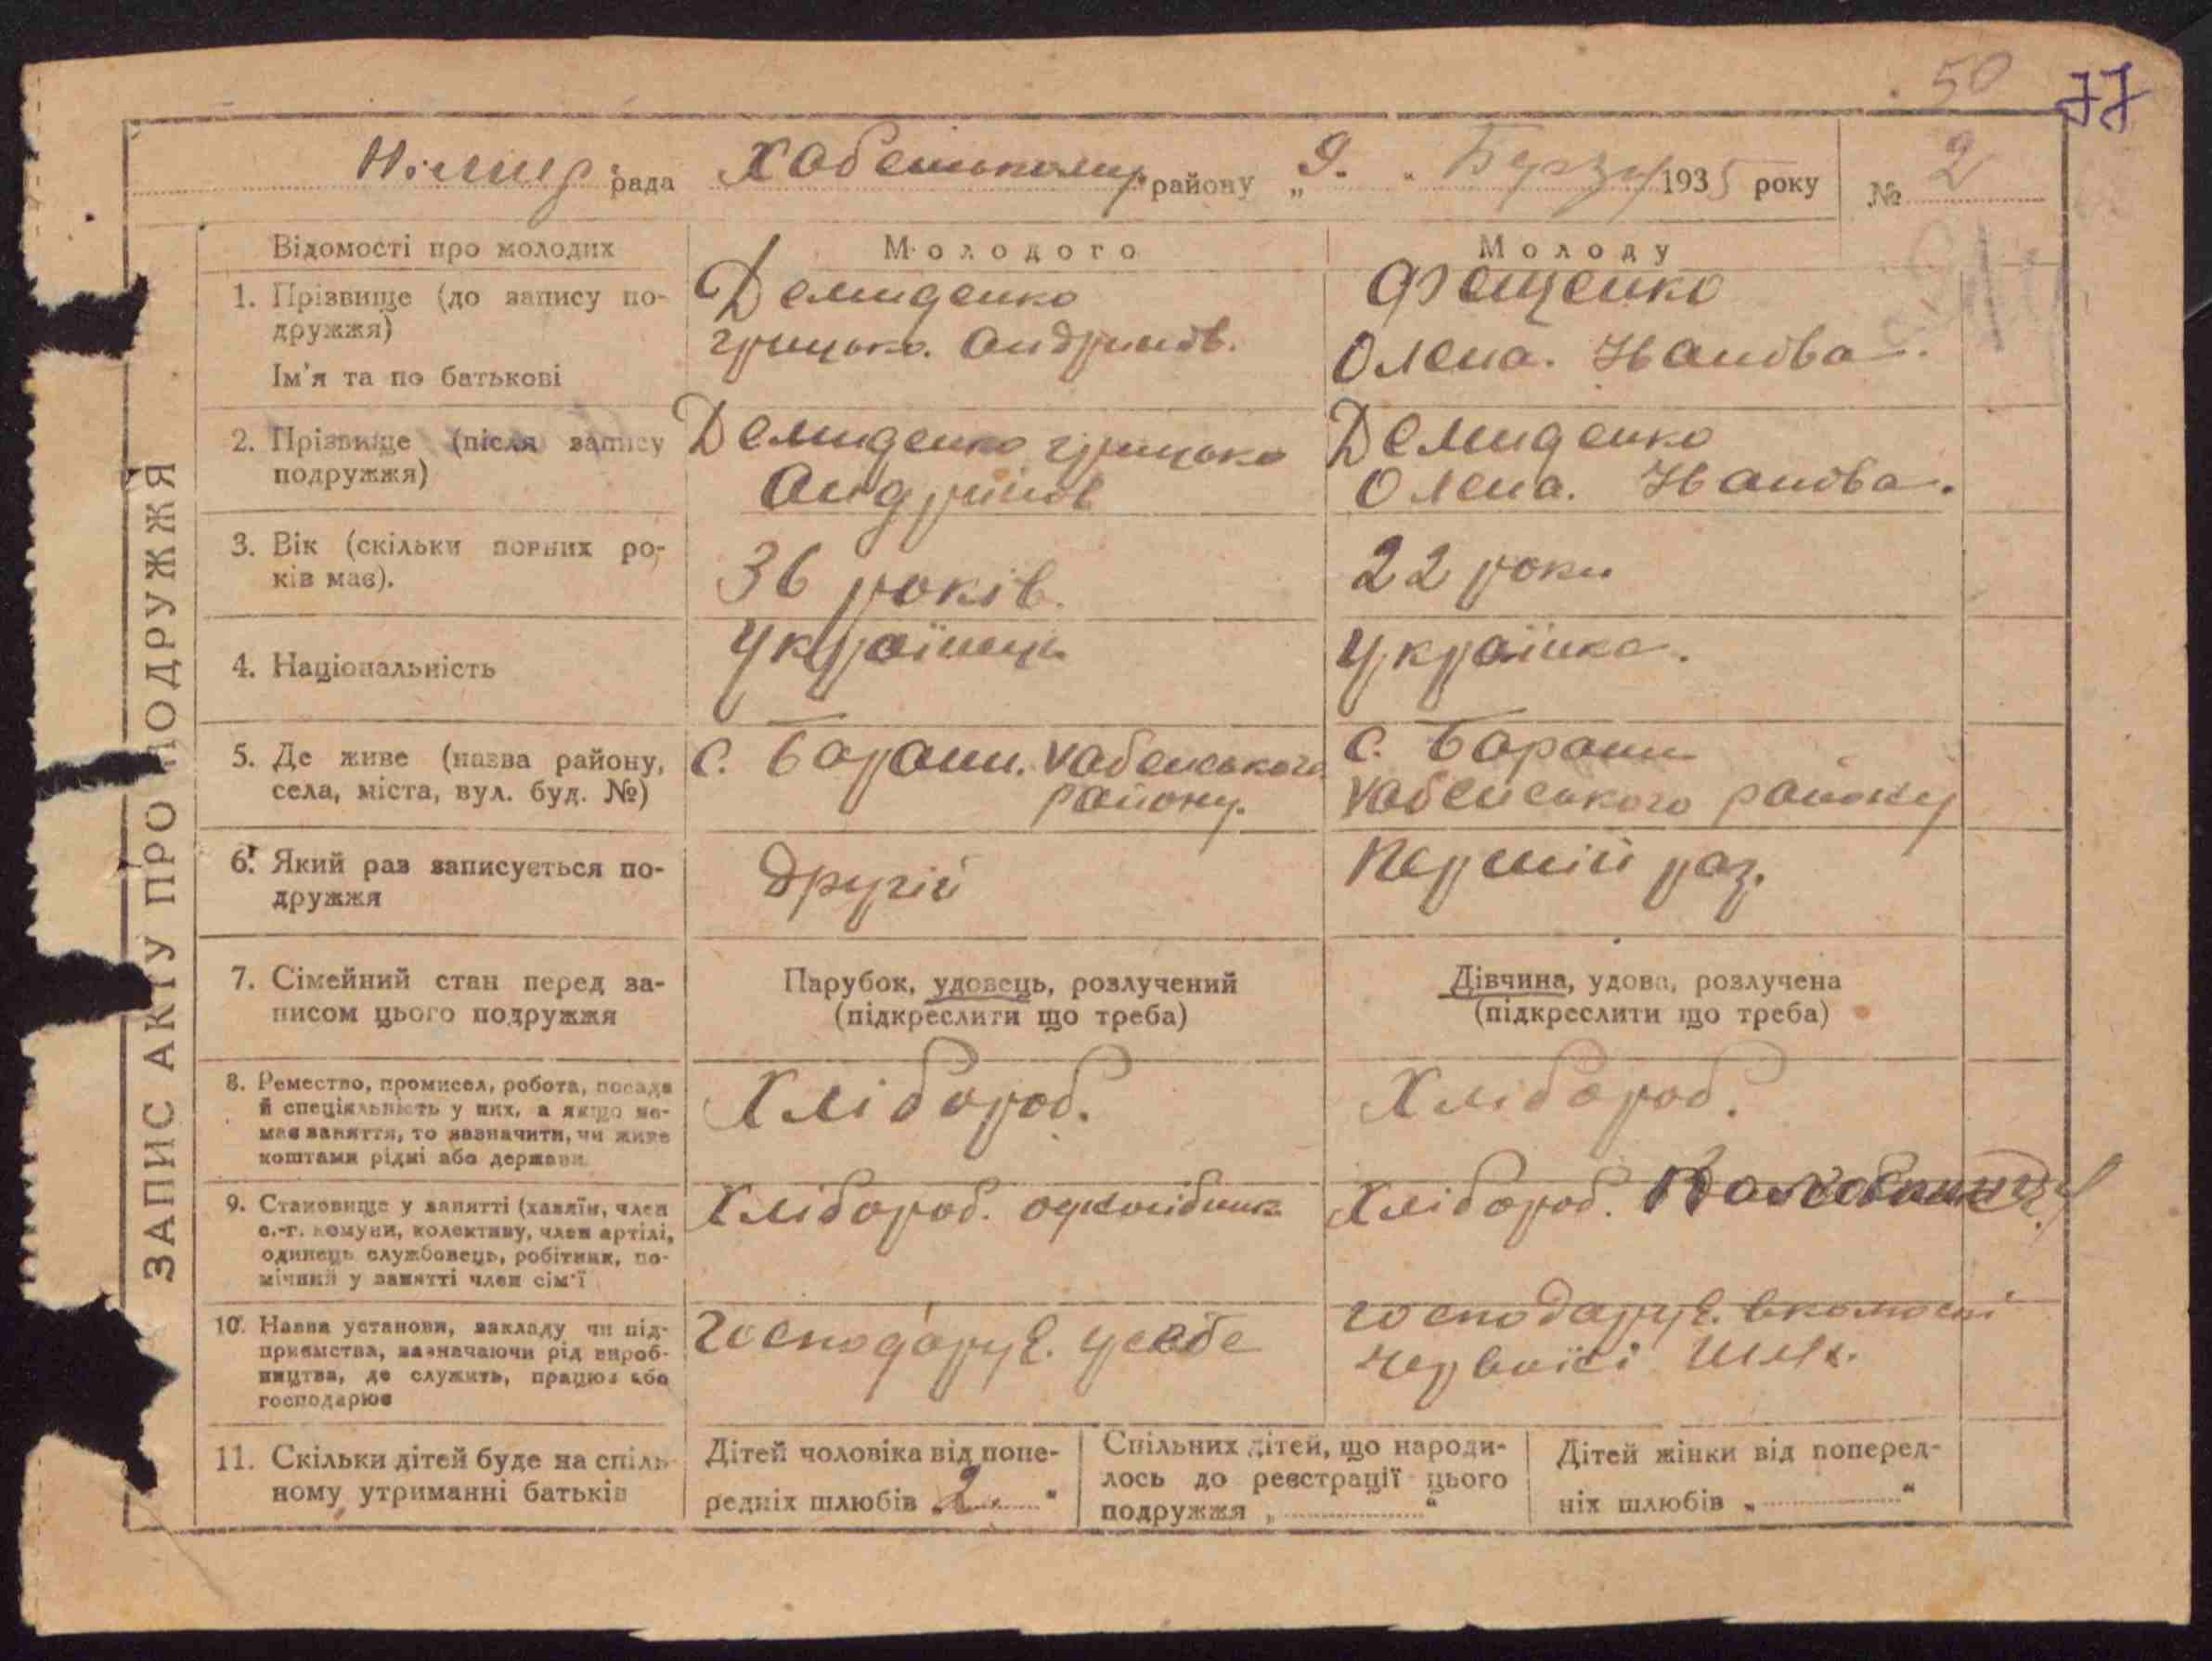 50
77
рада Хабенському району „9.“ Березня 1935 року № 2
ЗАПИС АКТУ ПРО ПОДРУЖЖЯ
Відомості про молодих
Молодого
Молоду
1. Прізвище (до запису по-
дружжя)
Ім'я та по батькові
Демиденко
Грицько. Андриів.
Фещенко
Олена. Іванівна.
2. Прізвище (після запису
подружжя)
Демиденко Грицько
Андріїов
Демиденко
Олена. Іванівна.
3. Вік (скільки повних ро-
ків має).
36 років.
22 роки
4. Національність
Українець
Українка.
5. Де живе (назва району,
села, міста, вул. буд. №)
с. Барани. Хабенського
району.
с. Барани
Хабенського району
6. Який раз записується по-
дружжя
другій
Першій раз.
7. Сімейний стан перед за-
писом цього подружжя
Парубок, удовець, розлучений
(підкреслити що треба)
Дівчина, удова, розлучена
(підкреслити що треба)
8. Ремество, промисел, робота, посада
й спеціяльність у них, а якщо не-
має заняття, то зазначити, чи живе
коштами рідні або держави
Хлібороб.
Хлібороб.
9. Становище у занятті (хазяїн, член
с.-г. комуни, колективу, член артілі,
одинець службовець, робітник, по-
мічний у занятті член сім'ї
Хлібороб. одноосібник
Хлібороб.
10. Назва установи, закладу чи під-
приємства, зазначаючи рід вироб-
ництва, де служить, працює або
господарює
господарує. усебе
господарує. вколгоспі
Червоний Шлях.
11. Скільки дітей буде на спіль-
ному утриманні батьків
Дітей чоловіка від попе-
редніх шлюбів „2.“
Спільних дітей, що народи-
лось до реєстрації цього
подружжя „ “
Дітей жінки від поперед-
ніх шлюбів „ “